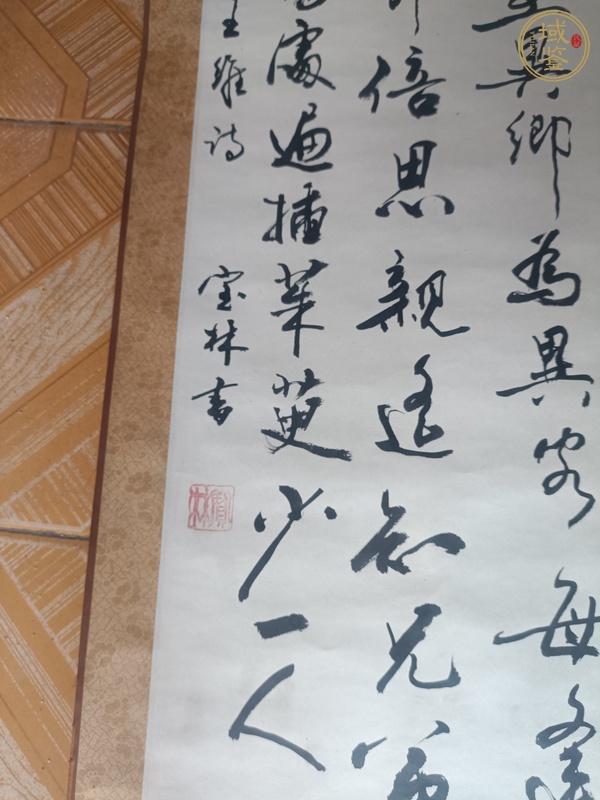 異鄉為異客每逢
倍思親遙知兄弟
處遍插茱萸少一人
王維詩
宝林書
寶林
域鉴